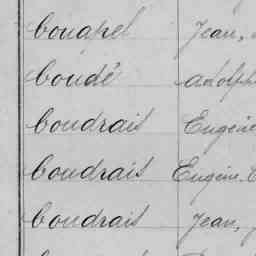 Couapel Jean,
Coudé Adolph
Coudrais Eugène
Coudrais Eugène,
Coudrais Jean,